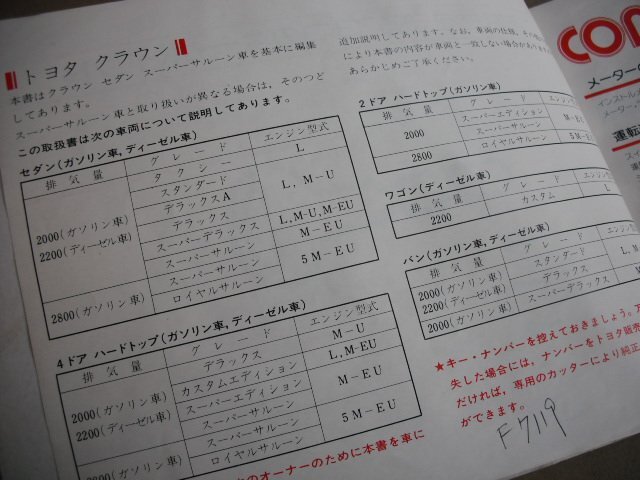 トヨタ クラウン
本書はクラウン セダン スーパーサルーン車を基本に編集
してあります。
スーパーサルーン車と取り扱いが異なる場合は，そのつど
追加説明してあります。なお，車両の仕様，その他の
により本書の内容が車両と一致しない場合があります
あらかじめご了承ください。
この取扱書は次の車両について説明してあります。
セダン(ガソリン車，ディーゼル車)
排気量 グレード エンジン型式
2000(ガソリン車)
2200(ディーゼル車)
タクシー L
スタンダード
デラックスA L，M-U
デラックス
スーパーデラックス L，M-U，M-EU
スーパーサルーン M-EU
2800(ガソリン車)
スーパーサルーン 5M-EU
ロイヤルサルーン
4ドア ハードトップ(ガソリン車，ディーゼル車)
排気量 グレード エンジン型式
2000(ガソリン車)
2200(ディーゼル車)
デラックス M-U
カスタムエディション L，M-EU
スーパーエディション M-EU
スーパーサルーン
スーパーサルーン 5M-EU
ロイヤルサルーン
のオーナーのために本書を車に
2ドア ハードトップ(ガソリン車)
排気量 グレード エンジン
2000 スーパーエディション M-EU
スーパーサルーン
2800 ロイヤルサルーン 5M-E
ワゴン(ディーゼル車)
排気量 グレード エンジン
2200 カスタム L
バン(ガソリン車，ディーゼル車)
排気量 グレード エンジン
2000(ガソリン車)
2200(ディーゼル車)
スタンダード L，M
デラックス
2000(ガソリン車) スーパーデラックス
★キー・ナンバーを控えておきましょう。
失した場合には，ナンバーをトヨタ販売
だければ，専用のカッターにより純正
ができます。
F7119
CON
メーターの
インストルメ
メーター
運転
スイ